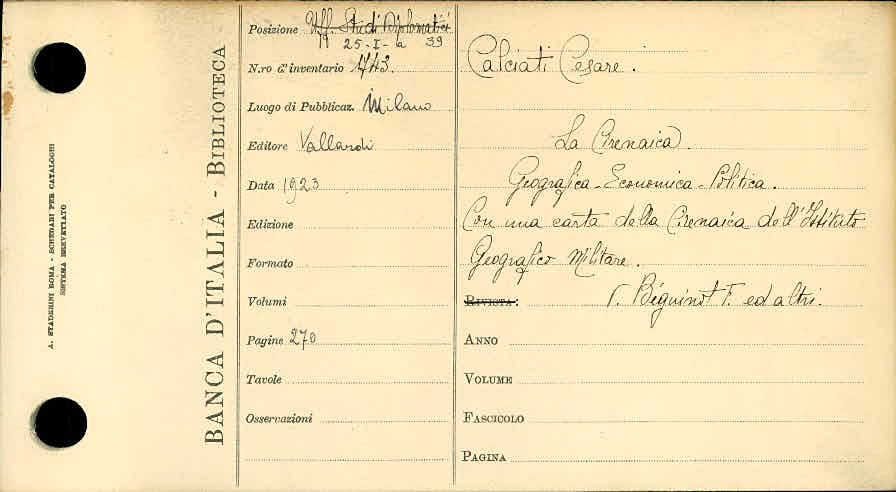 A. STADERINI ROMA - SCHEDARI PER CATALOGHI
SISTEMA BREVETTATO
BANCA D'ITALIA - BIBLIOTECA
Posizione Uff. Studi Diplomatici
19 25-I-a 39
N.ro d'inventario 1743.
Luogo di Pubblicaz. Milano
Editore Vallardi
Data 1923
Edizione
Formato
Volumi
Pagine 270
Tavole
Osservazioni
Calciati Cesare.
La Cirenaica.
Geografica - Economica - Politica.
Con una carta della Cirenaica dell'Istituto
Geografico Militare.
RIVISTA: v. Béguinot F. ed altri.
ANNO
VOLUME
FASCICOLO
PAGINA